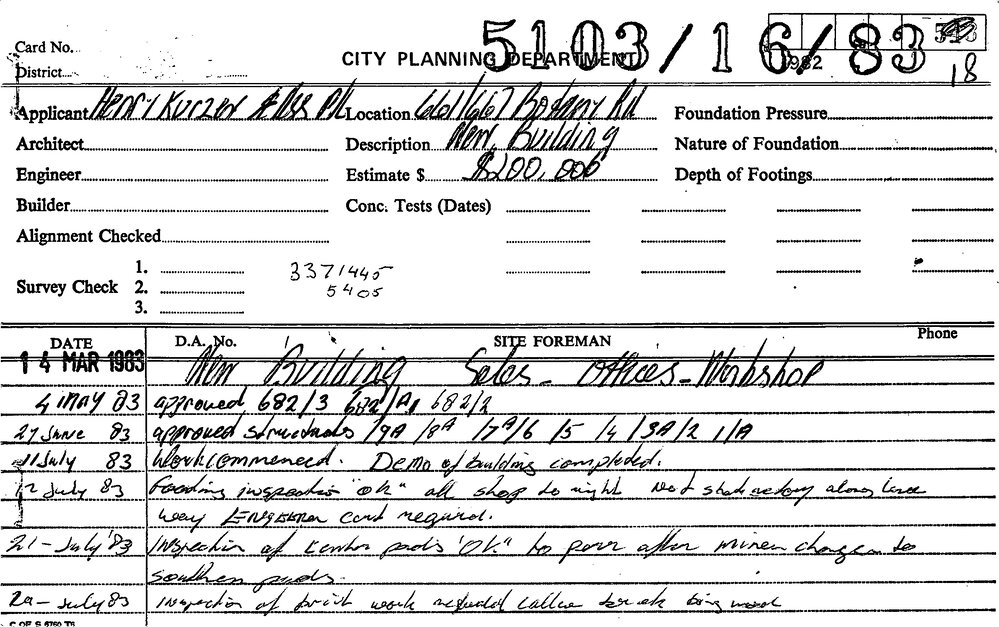 5103/16/83
Card No.
CITY PLANNING DEPARTMENT
1982
18
District
Applicant Henry Kurzer & Ass P/L Location 661/667 Botany Rd Foundation Pressure
Architect Description New Building Nature of Foundation
Engineer Estimate $ $200,000 Depth of Footings
Builder Conc. Tests (Dates)
Alignment Checked
1.
Survey Check 2.
3.
3371445
5405
DATE D.A. No. SITE FOREMAN Phone
14 MAR 1983 New Building Sales - Offices - Workshop
4 MAY 83 approved 682/3 682/A, 682/2
27 June 83 approved structurals /9A /8A /7A/6 /5 /4 /3A/2 1/A
11 July 83 Work commenced. Demo of building completed.
12 July 83 Footing inspection "OK" all shop to right Not along lane
way Engineer cert required.
21 - July '83 Inspection of pads "OK" to pour after minor change to
southern pads.
29 - July 83 Inspection of brick work being used
C OF S 6760 TS